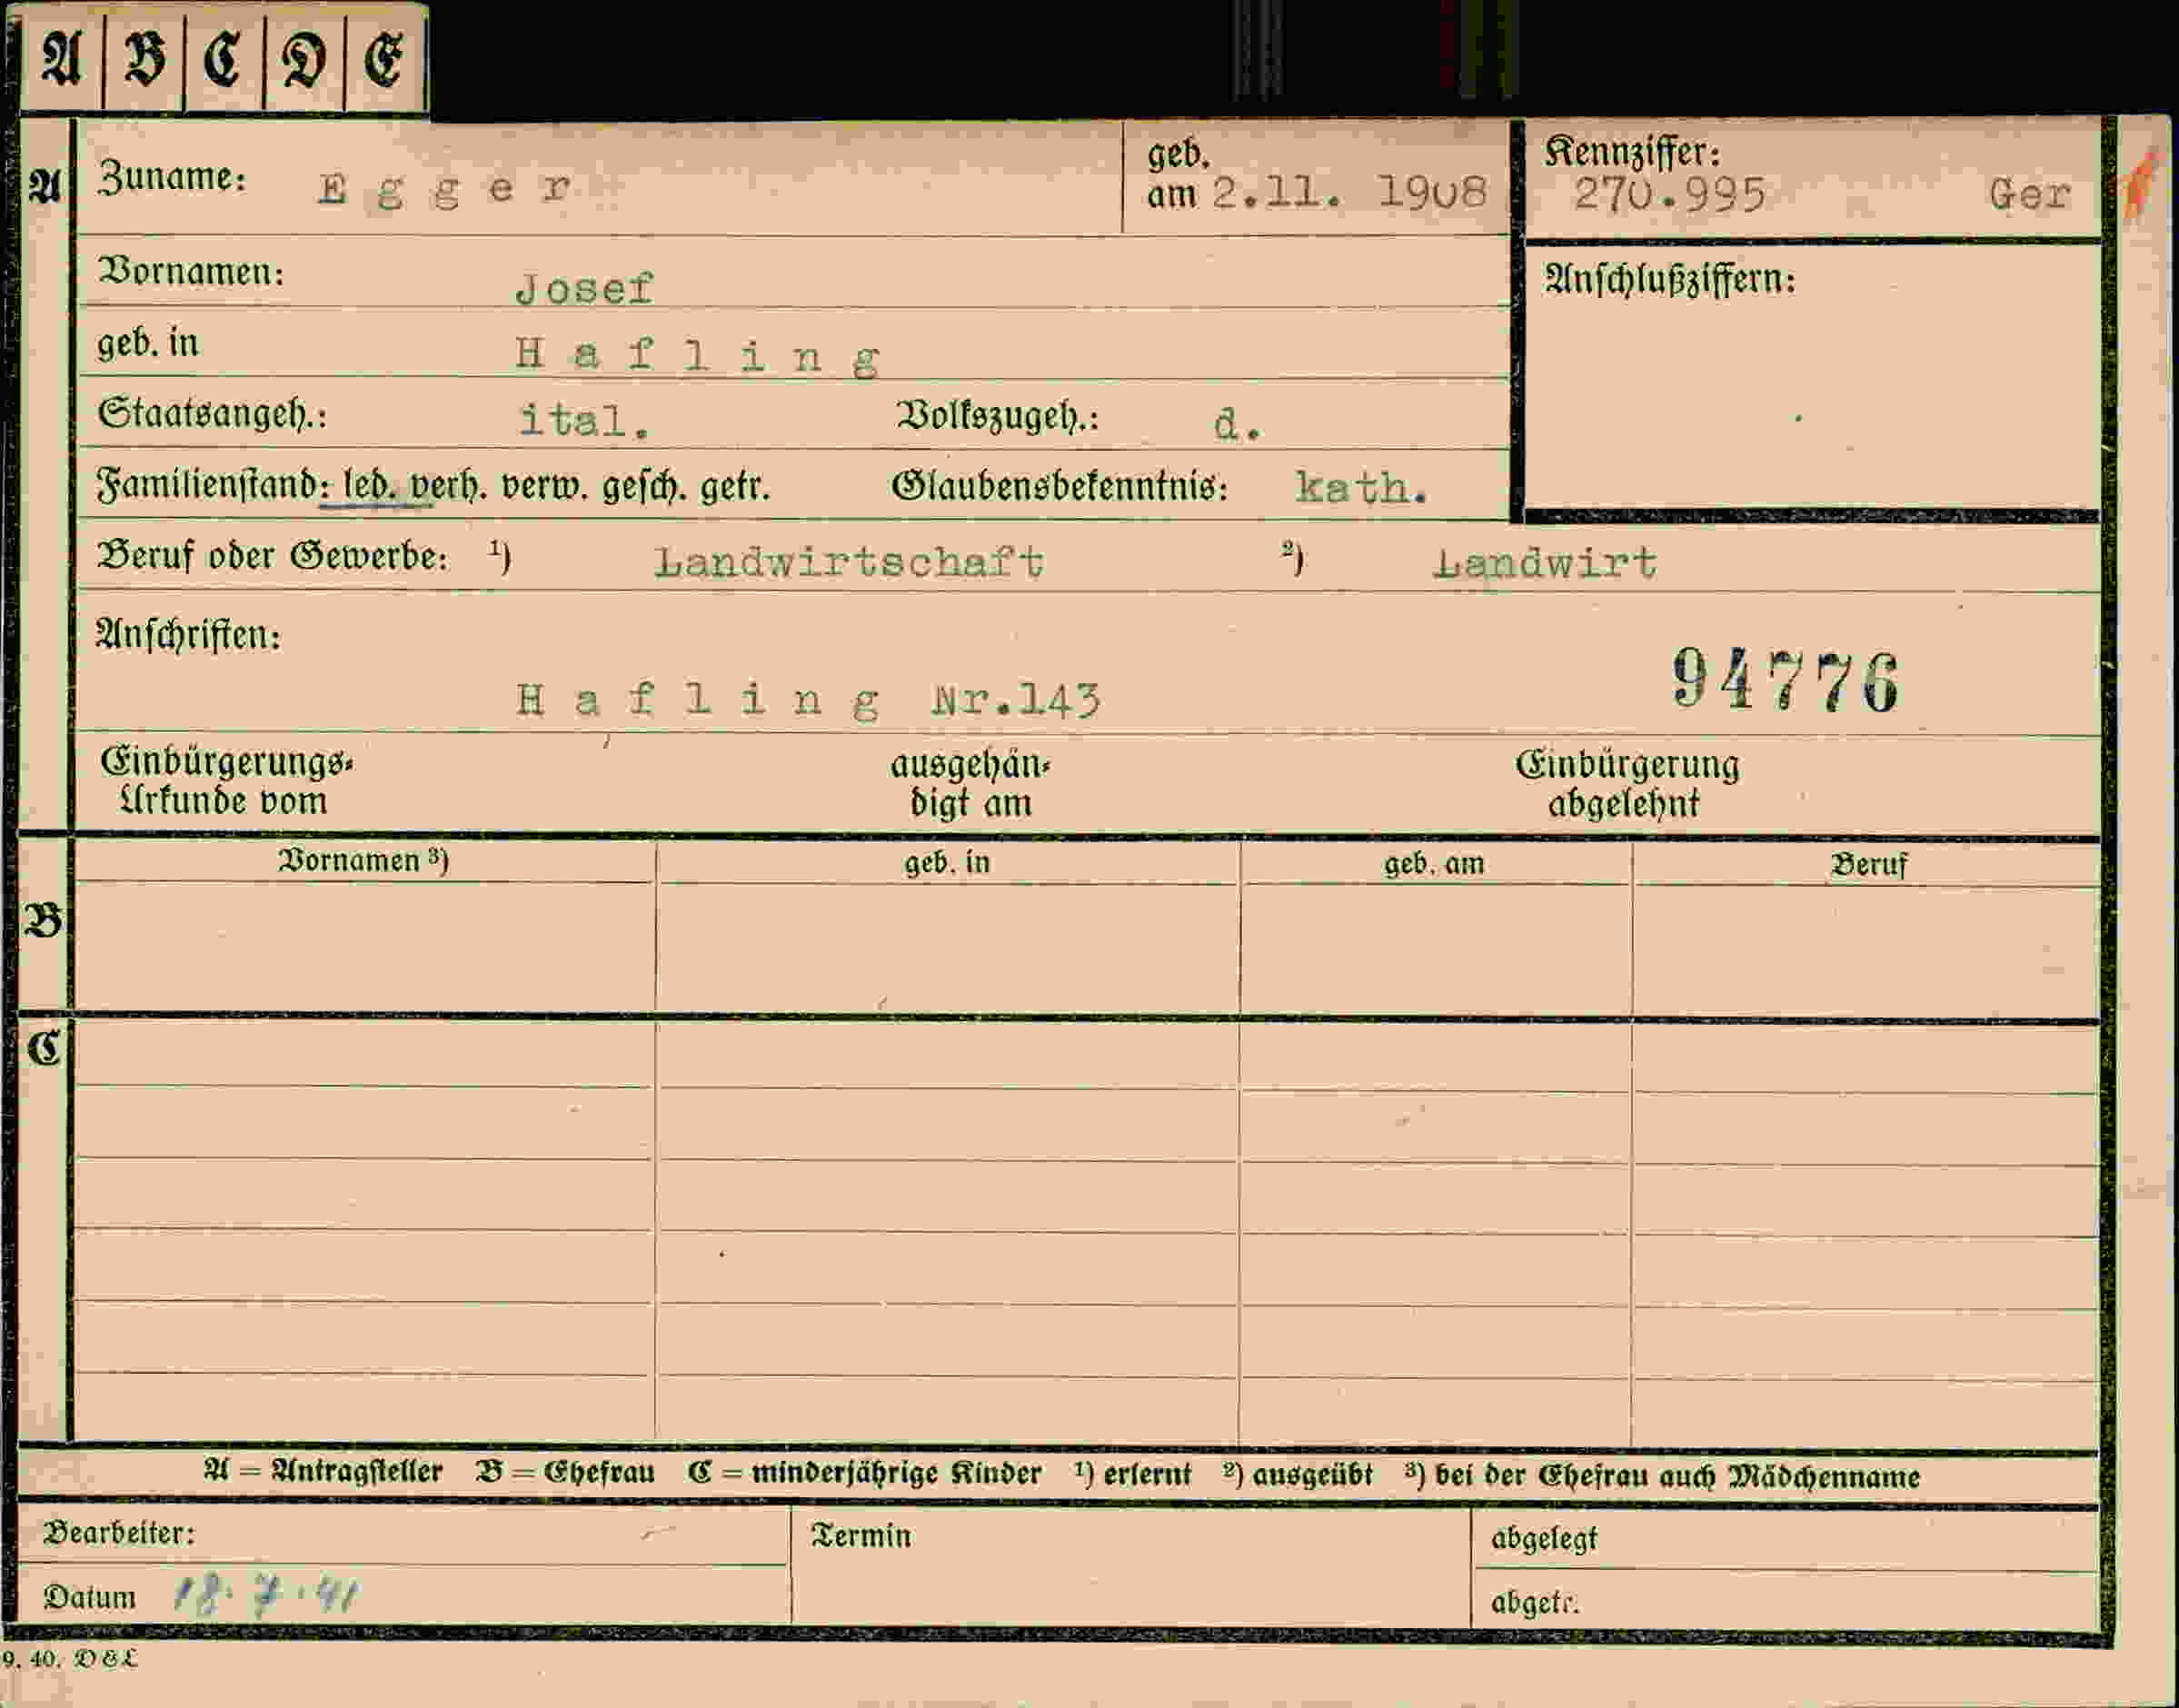 A B C D E
A Zuname: Egger geb. am 2.11. 1908 Kennziffer: 270.995 Ger
Vornamen: Josef Anschlußziffern:
geb. in Hafling
Staatsangeh.: ital. Volkszugeh.: d.
Familienstand: led. verh. verw. gesch. getr. Glaubensbekenntnis: kath.
Beruf oder Gewerbe: ¹) Landwirtschaft ²) Landwirt
Anschriften:
94776
Hafling Nr.143
Einbürgerungs- ausgehän- Einbürgerung
Urkunde vom digt am abgelehnt
Vornamen ³) geb. in geb. am Beruf
B
C
A = Antragsteller B = Ehefrau C = minderjährige Kinder ¹) erlernt ²) ausgeübt ³) bei der Ehefrau auch Mädchenname
Bearbeiter: Termin abgelegt
Datum 18.7.41 abgetr.
9. 40. D&L